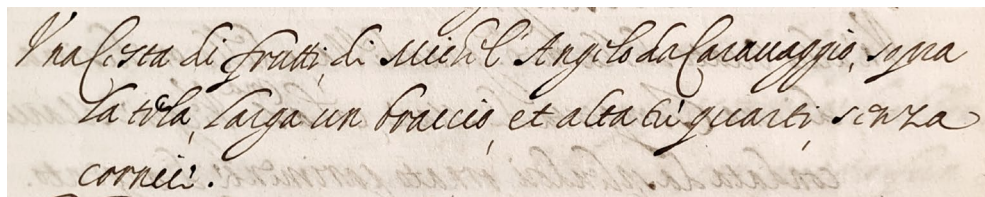 Una Cesta di frutti, di Michel' Angelo da Caravaggio, sopra
la tela, larga un braccio, et alta tre quarti, senza
cornici.